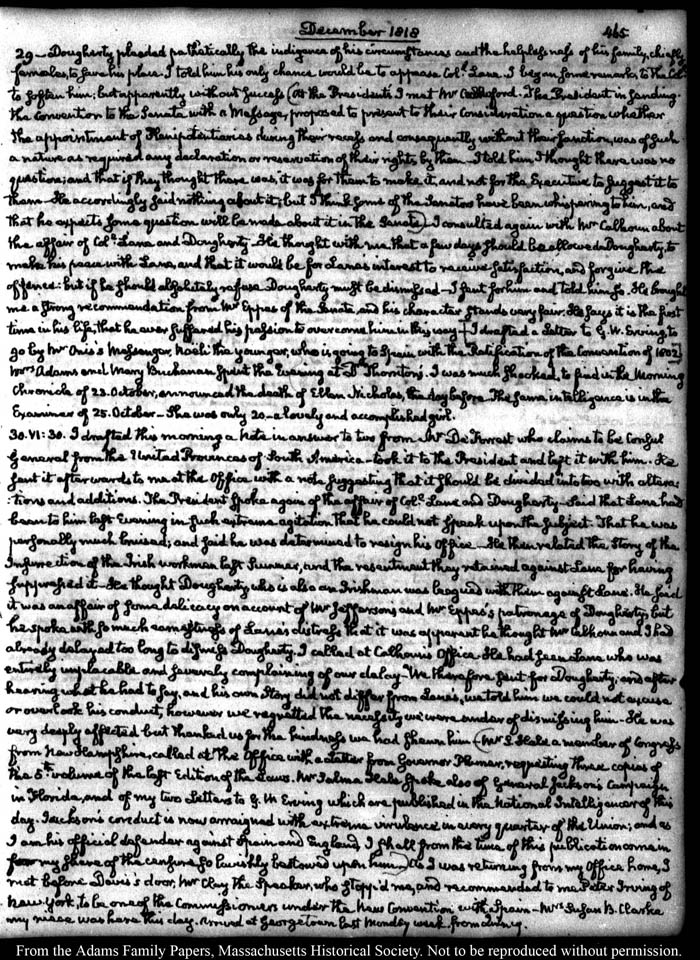 December 1818
465
29 — Dougherty pleaded pathetically the indigence of his circumstances and the helplessness of his family, chiefly
females, to save his place. I told him his only chance would be to appease Colo. Lane. I began some remarks to the Colo.
to soften him; but apparently without success (At the President's I met Mr Crawford. The President in sending
the Convention to the Senate with a Message, proposed to present to their consideration a question whether
the appointment of Plenipotentiaries during their recess and consequently without their sanction, was of such
a nature as required any declaration or reservation of their rights by them — I told him, I thought there was no
question; and that if they thought there was, it was for them to make it, and not for the Executive to suggest it to
them — He accordingly said nothing about it; but I think some of the Senators have been whispering to him, and
that he expects some question will be made about it in the Senate) I consulted again with Mr Calhoun about
the affair of Colo. Lane and Dougherty — He thought with me that a few days should be allowed Dougherty, to
make his peace with Lane, and that it would be for Lane's interest to receive satisfaction, and forgive the
offence: but if he should absolutely refuse Dougherty must be dismissed — I sent for him and told him so. He brought
me a strong recommendation from Mr Eppes of the Senate, and his character stands very fair. He says it is the first
time in his life, that he ever suffered his passion to overcome him in this way — I drafted a Letter to G. W. Erving to
go by Mr Onis's Messenger, the younger, who is going to Spain with the Ratification of the Convention of 1802)
Mrs Adams and Mary Buchanan spent the Evening at Dr Thornton's. I was much shocked, to find in the Morning
Chronicle of 23. October, announced the death of Ellen Nicholas, the day before. The same intelligence is in the
Examiner of 25. October — She was only 20 — a lovely and accomplished girl.
30. VI: 30. I drafted this morning a Note in answer to two from Mr De Forrest who claims to be Consul
General from the United Provinces of South America — took it to the President and left it with him. He
sent it afterwards to me at the Office with a note suggesting that it should be divided into two with altera-
:tions and additions. The President spoke again of the affair of Colo. Lane and Dougherty — Said that Lane had
been to him last Evening in such extreme agitation that he could not speak upon the subject. That he was
personally much bruised; and said he was determined to resign his office — He then related the Story of the
Insurrection of the Irish workmen last Summer, and the resentment they retained against Lane for having
suppressed it — He thought Dougherty who is also an Irishman was leagued with them against Lane. He said
it was an affair of some delicacy on account of Mr Jefferson's and Mr Eppes's patronage of Dougherty; but
he spoke with so much earnestness of Lane's distress that it was apparent he thought Mr Calhoun and I had
already delayed too long to dismiss Dougherty. I called at Calhoun's Office. He had seen Lane who was
entirely implacable and severely complaining of our delay. We therefore sent for Dougherty; and after
hearing what he had to say, and his own Story did not differ from Lane's, we told him we could not excuse
or overlook his conduct, however we regretted the necessity we were under of dismissing him — He was
very deeply affected but thanked us for the kindness we had shewn him (Mr S. Hale a member of Congress
from New Hampshire, called at the Office with a Letter from Governor Plumer, requesting three copies of
the 5th volume of the last Edition of the Laws. Mr Salma Hale spoke also of General Jackson's Campaign
in Florida, and of my two Letters to G. W Erving which are published in the National Intelligencer of this
day. Jackson's conduct is now arraigned with extreme virulence in every quarter of the Union; and as
I am his official defender against Spain and England, I shall from the time of this publication come in
for my share of the censure so lavishly bestowed upon him) As I was returning from my Office home, I
met before Davis's door, Mr Clay the Speaker, who stopp'd me, and recommended to me Peter Irving of
New York, to be one of the Commissioners under the New Convention with Spain — Mrs Susan B. Clarke
my niece was here this day. Arrived at Georgetown last Monday week, from Quincy.
From the Adams Family Papers, Massachusetts Historical Society. Not to be reproduced without permission.